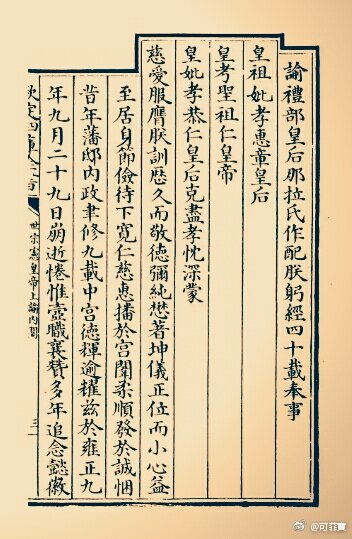 諭禮部皇后那拉氏作配朕躬經四十載奉事
皇祖妣孝惠章皇后
皇考聖祖仁皇帝
皇妣孝恭仁皇后克盡孝忱深蒙
慈愛服膺朕訓歷久而敬德彌純懋著坤儀正位而小心益
至居身節儉待下寬仁慈惠播於宮闈柔順發於誠悃
昔年藩邸內政聿修九載中宮德輝逾耀茲於雍正九
年九月二十九日崩逝惓惟壼職襄賛多年追念懿徽
欽定四庫全書 世宗憲皇帝上諭內閣 三
@可菲寶